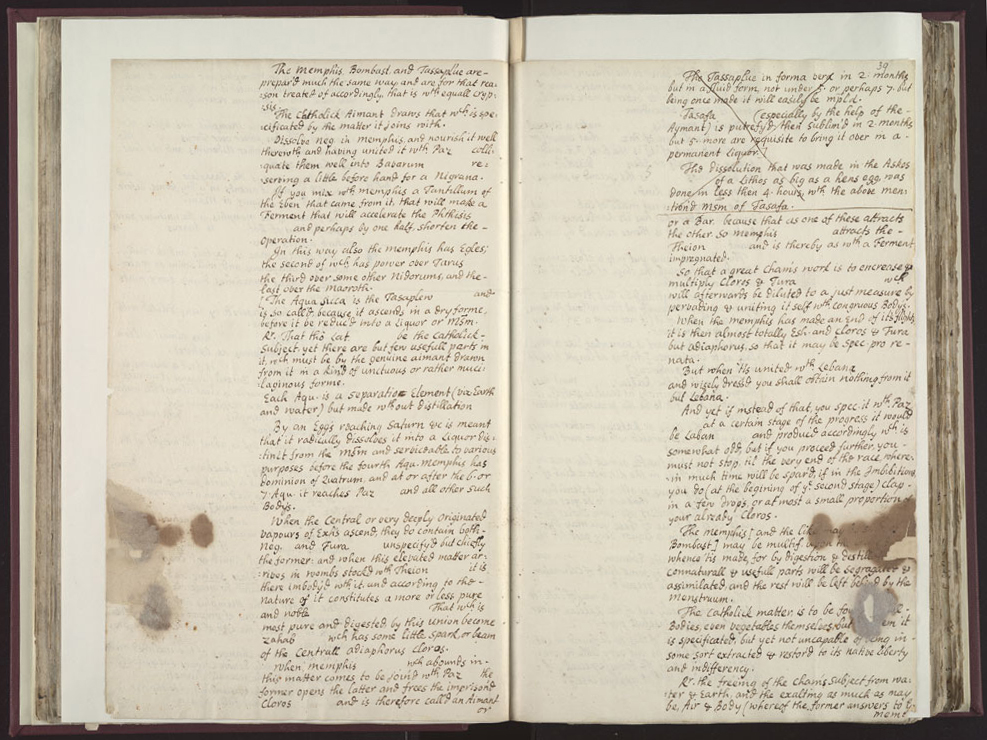 The Memphis, Bombast, and Tassaplue are
prepar'd much the same way, and are for that rea:
son treated of accordingly, that is wth equall Cryp:
:sis.
The Chtholick Aimant Draws that wch is spe:
:cificated by the matter it Joins with.
Dissolve Neg. in memphis, and nourish it well
therewth and having united it wth Paz colli:
:quate them well into Babarum re:
:serving a little before hand for a Nigrana.
If you mix wth memphis a Tantillum of
the Eben that came from it, that will make a
Ferment that will accelerate the Phthisis
and perhaps by one half, shorten the
Operation.
In this way also the memphis has Egles;
the second of wch has power over Tarus
the third over some other Nidorums, and the
last over the Maroth.
The Aqua Sicca is the Tasaplew and
is so call'd, because it ascends in a dry forme,
before it be reduc'd into a Liquor or Msm.
Rx. That tho Lat be the Catholick
Subject, yet there are but few usefull parts in
it, wch must be by the genuine aimant drawn
from it in a kind of unctuous or rather muci:
:laginous forme.
Each Aqu. is a separatio Element (via Earth
and water) but made wthout distillation
By an Eggs reaching Saturn &c is meant
that it radically dissolves it into a Liquor Dis:
:tinct from the Msm and serviceable to various
purposes before the fourth Aqu. Memphis has
Dominion of Quatrum, and at or after the 6. or
7. Aqu it reaches Paz and all other such
Bodys.
When the Central or very deeply Originated
vapours of Exhs ascend, they do contain both
Neg. and Fura unspecify'd but chiefly
the former: and when this elevated matter ar:
:rives in wombs stock'd wth Theion it is
there imbody'd wth it, and according to the
nature of it constitutes a more or less pure
and noble That wch is
most pure and digested by this union become
Zahab wch has some little spark or beam
of the Centrall adiaphorus Cloros.
When memphis wch abounds in
this matter comes to be joind wth Paz the
former opens the latter and frees the imprisond
Cloros and is therefore call'd an Aimant
or
39
The Tassaplue in forma vera in 2. months
but in a fluid form, not under 5. or perhaps 7. but
being once made it will easily be mpld.
Tasafa (especially by the help of the
Aymant) is putrefy'd, then sublim'd in 2. months
but 5. more are requisite to bring it over in a
permanent Liquor.
The dissolution that was made in the Askos
of a Lithos as big as a hens egg, was
done in less then 4. hours, wth the above men
:tion'd Msm. of Tasafa.
or a Bar. because that as one of these attracts
the other, so Memphis attracts the
Theion and is thereby as wth a Ferment
impregnated.
So that a great Chams work is to encrease &
multiply Cloros & Fura wch
will afterwards be diluted to a just measure by
pervading & uniting it self wth congruous Bodys.
When the memphis has made an End of its flight,
it is then almost totally Esh. and Cloros & Fura
but adiaphorus, so that it may be Spec pro re
nata.
But when 'tis united wth Lebana
and wisely dress'd you shall obtain nothing from it
but Lebana.
And yet if instead of that, you spec it wth Paz
at a certain stage of the progress it would
be Laban and produce accordingly wch is
somewhat odd, but if you proceed further, you
must not stop til the very end of the race, where:
:in much time will be spar'd, if in the Imbibitions
you do (at the begining of ye. second stage) clap
in a few drops, or at most a small proportion of
your already Cloros.
The Memphis [and the like
Bombast] may be multif
whence tis made, for by digestion & Distill
connaturall & usefull parts will be segregated &
assimilated, and the rest will be left behind by the
menstruum.
The Catholick matter, is to be fo
Bodies, even vegetables themselves, but em it
is specificated, but yet not uncapable of being in
some sort extracted & restor'd to its native liberty
and indifferency.
Rx. the freeing of the Chams Subject from wa:
:ter & Earth, and the exalting as much as may
be, Air & Body (whereof the former answers to
memt